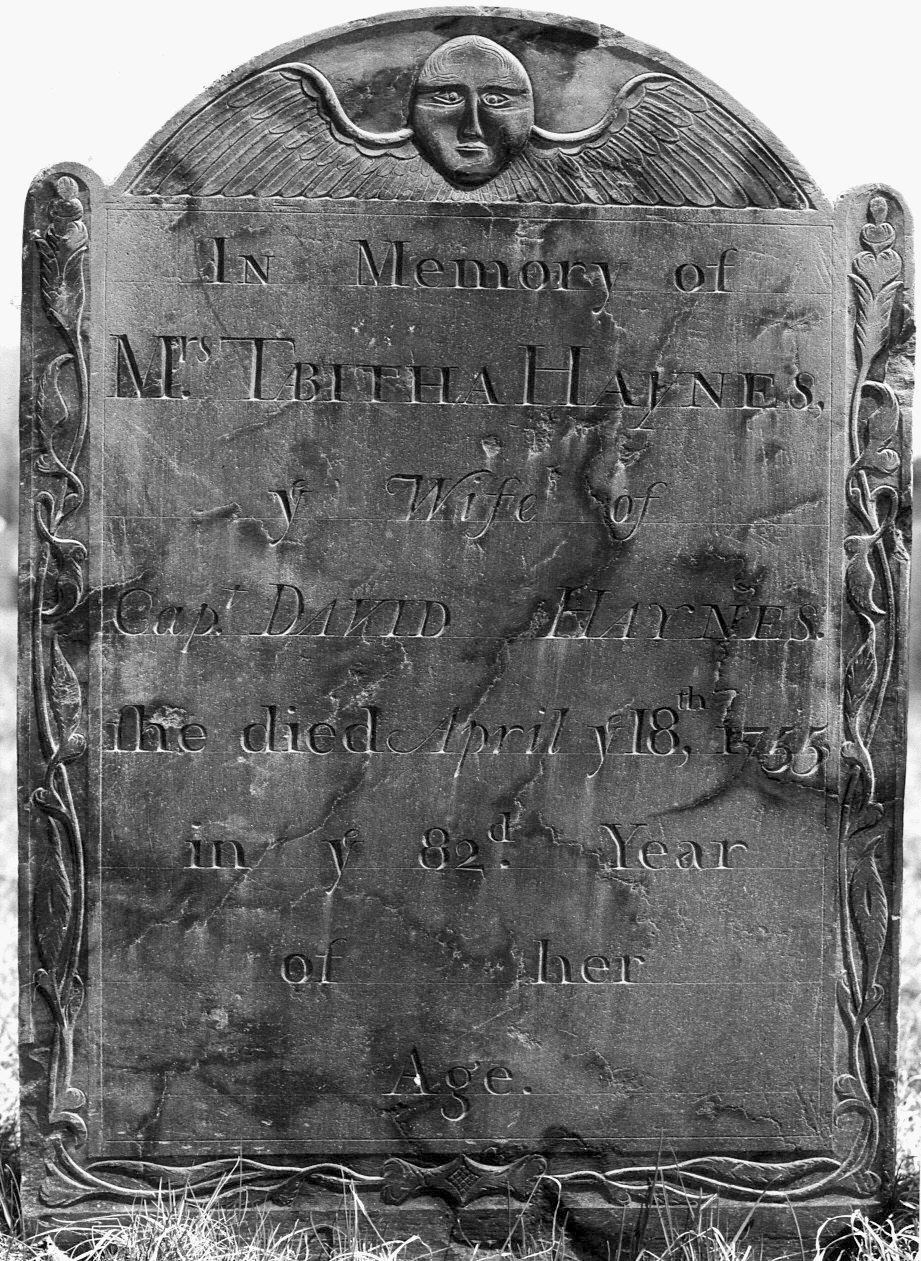 In Memory of
Mrs. TABITHA HAYNES,
ye Wife of
Capt. DAVID HAYNES.
ſhe died April ye 18th, 1755
in ye 82d. Year
of her
Age.